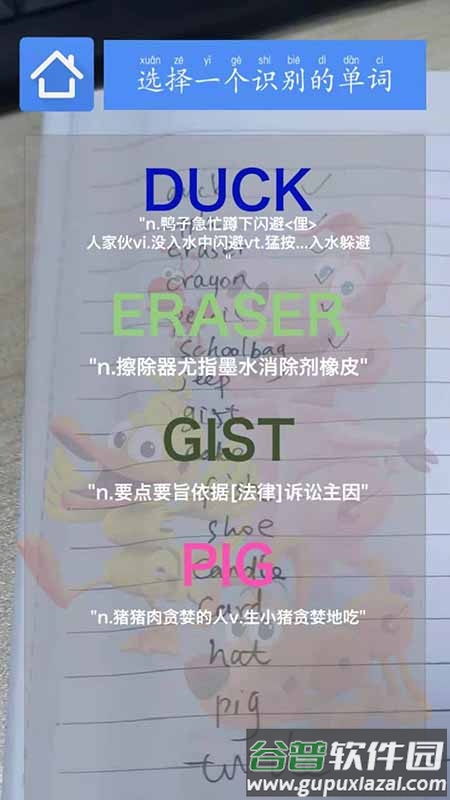 xuǎn zé yī gè shí bié dì dān cí
选择一个识别的单词
DUCK
"n.鸭子急忙蹲下闪避<俚>
人家伙vi.没入水中闪避vt.猛按...入水躲避
"
eraser
crayon
ERASER
schoolbag
"n.擦除器尤指墨水消除剂橡皮"
jeep
gist
GIST
"n.要点要旨依据[法律]诉讼主因"
shoe
PIG
candie
"n.猪猪肉贪婪的人v.生小猪贪婪地吃"
hat
pig
谷普软件园
www.gupuxlazal.com